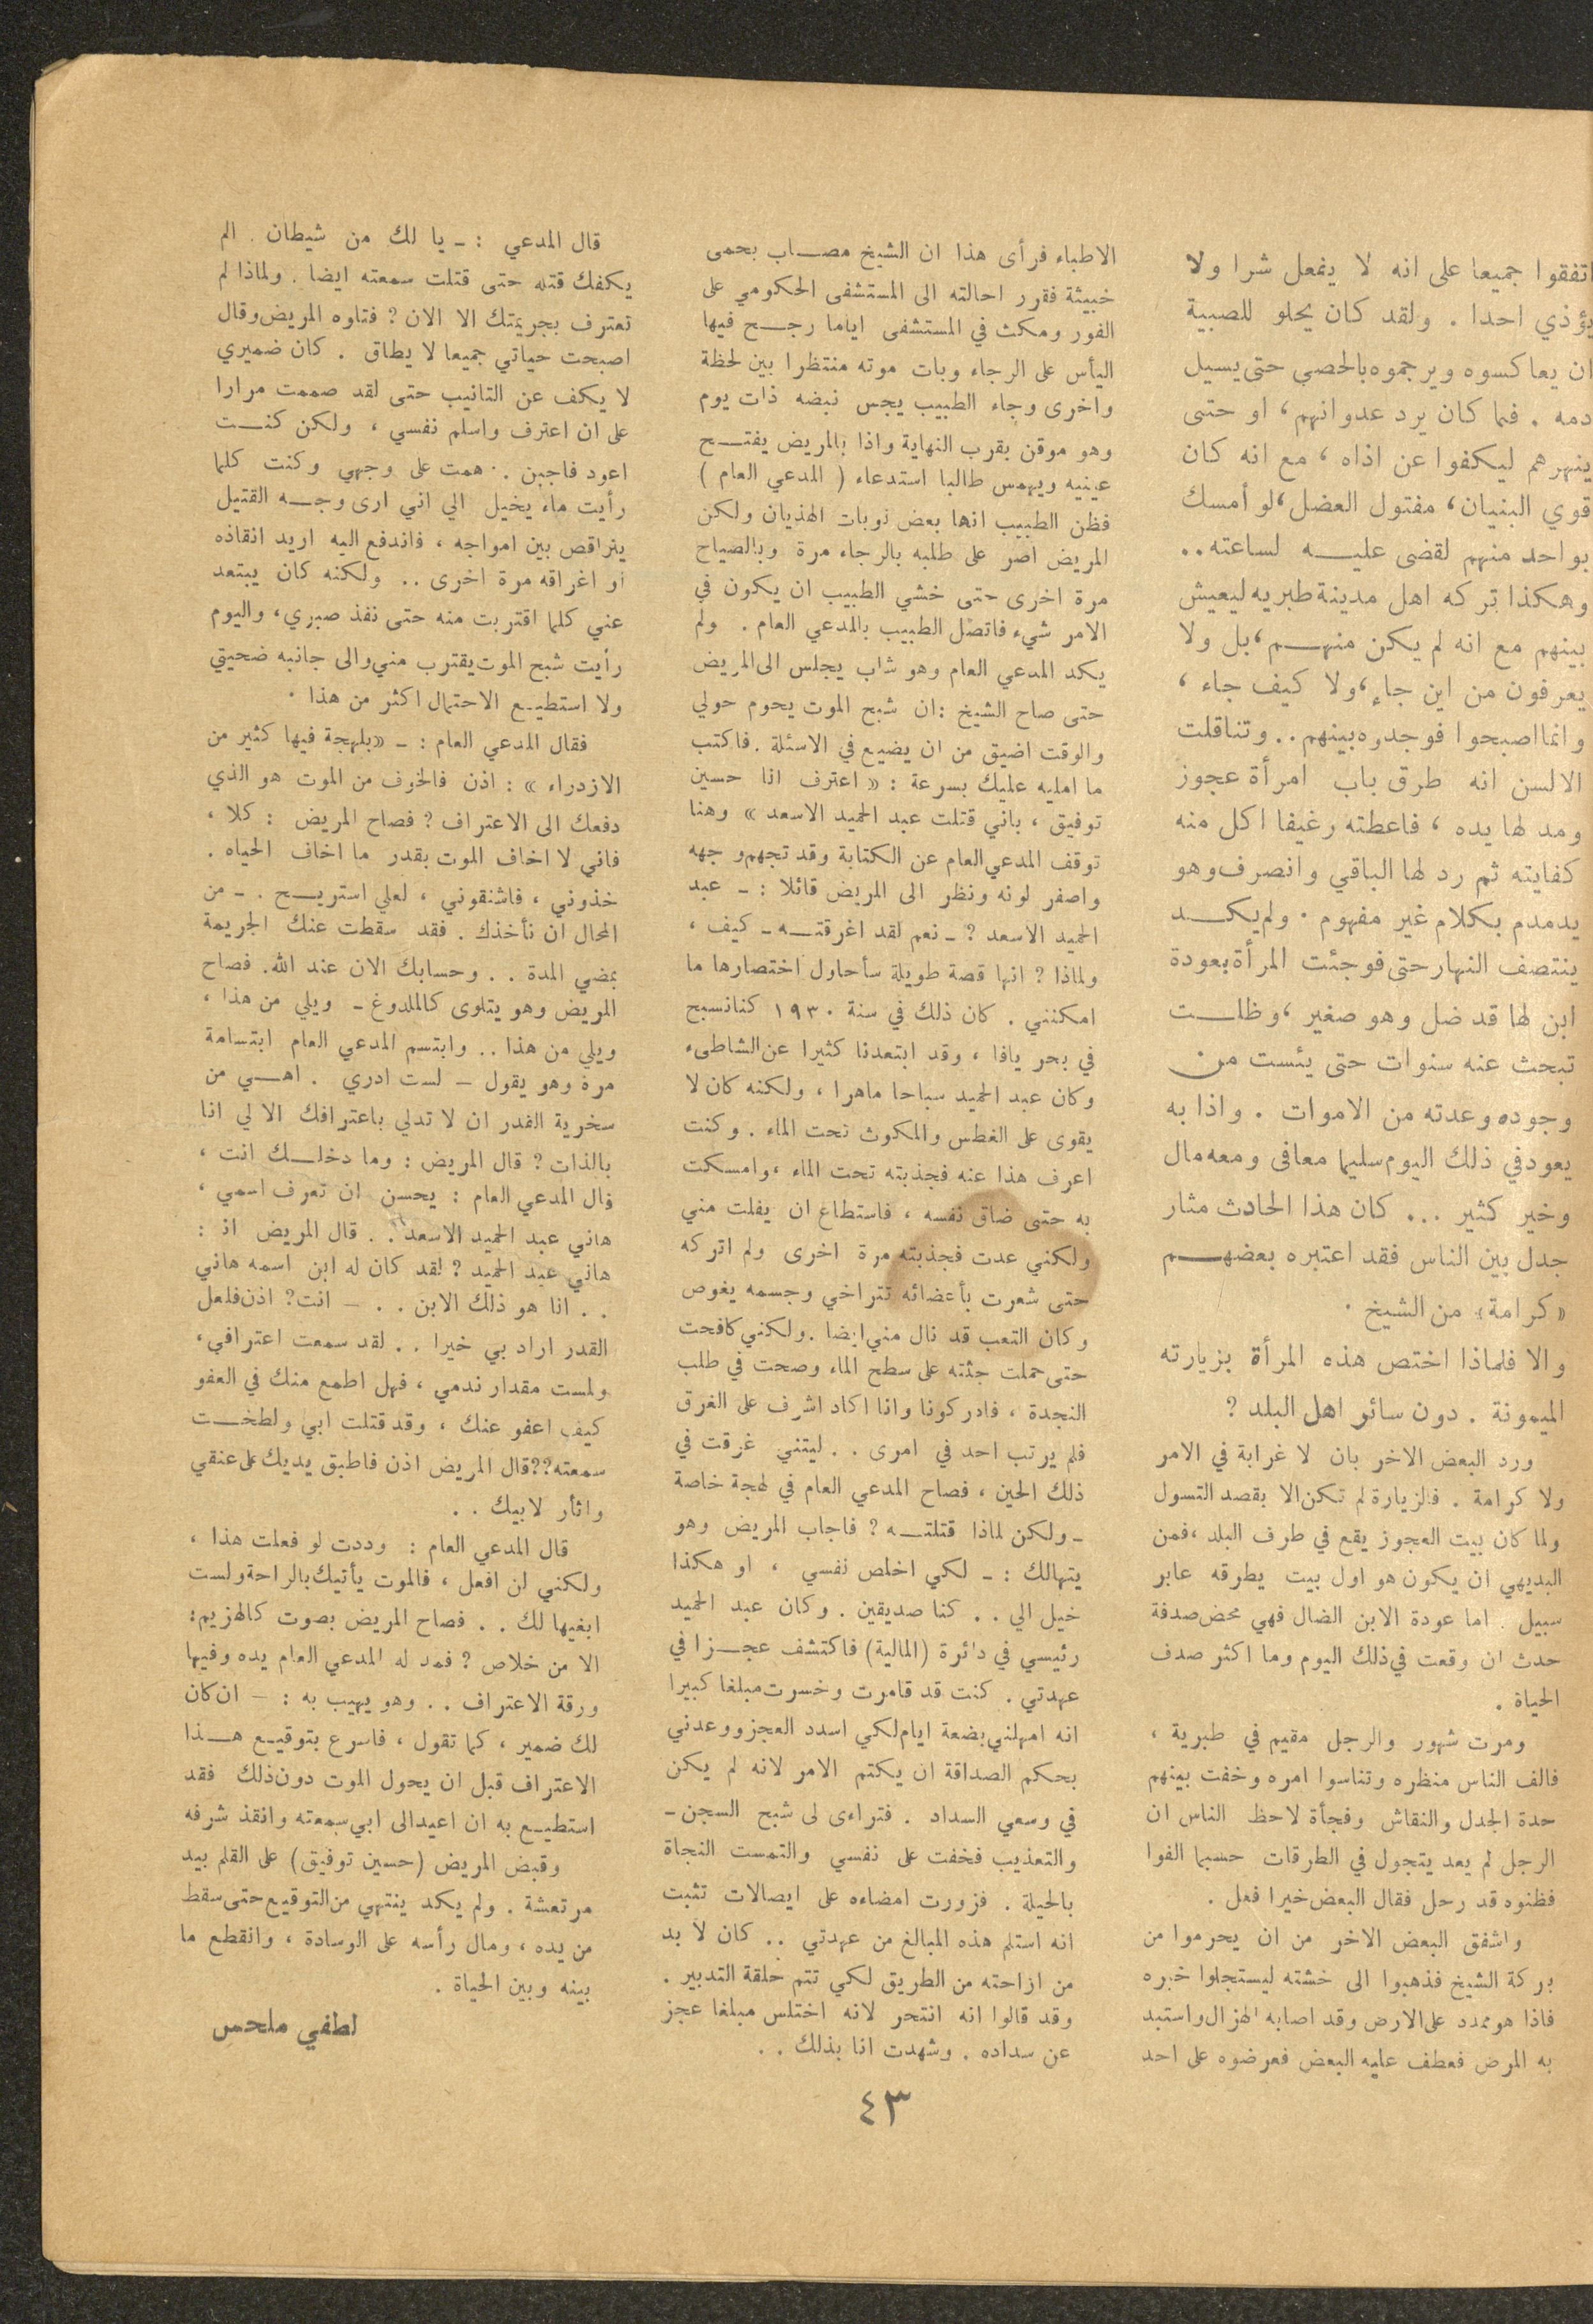 اتفقوا جميعا على انه لا يفعل شرا ولا
يؤذي احدا . ولقد كان يحلو للصبية
ان يعاكسوه ويرجموه بالحصى حتى يسيل
دمه . فما كان يرد عدوانهم، او حتى
ينهرهم ليكفوا عن اذاه ، مع انه كان
قوي البنيان، مفتول العضل، لو أمسك
بواحد منهم لقضى عليه لساعته..
وهكذا تركه اهل مدينة طبريه ليعيش
بينهم مع انه لم يكن منهم، بل ولا
يعرفون من اين جاء، ولا كيف جاء ،
وانما اصبحوا فوجدوه بينهم.. وتناقلت
الالسن انه طرق باب امرأة عجوز
ومد لها يده ، فاعطته رغيفا اكل منه
كفايته ثم رد لها الباقي وانصرف وهو
يدمدم بكلام غير مفهوم . ولم يكد
ينتصف النهار حتى فوجئت المرأة بعودة
ابن لها قد ضل وهو صغير ، وظلت
تبحث عنه سنوات حتى يئست من
وجوده وعدته من الاموات . واذا به
يعود في ذلك اليوم سليما معافى ومعه مال
وخير كثير ... كان هذا الحادث مثار
جدل بين الناس فقد اعتبره بعضهم
«كرامة» من الشيخ .
والا فلماذا اختص هذه المرأة بزيارته
الميمونة . دون سائر اهل البلد ؟
ورد البعض الاخر بان لا غرابة في الامر
ولا كرامة . فالزيارة لم تكن الا بقصد التسول
ولما كان بيت العجوز يقع في طرف البلد ، فمن
البديهي ان يكون هو اول بيت يطرقه عابر
سبيل . اما عودة الابن الضال فهي محض صدفة
حدث ان وقعت في ذلك اليوم وما اكثر صدف
الحياة .
ومرت شهور والرجل مقيم في طبرية ،
فالف الناس منظره وتناسوا امره وخفت بينهم
حدة الجدل والنقاش وفجأة لاحظ الناس ان
الرجل لم يعد يتجول في الطرقات حسبما الفوا
فظنوه قد رحل فقال البعض خيرا فعل .
واشفق البعض الاخر من ان يحرموا من
بركة الشيخ فذهبوا الى خشته ليستجلوا خبره
فاذا هو ممدد على الارض وقد اصابه الهزال واستبد
به المرض فعطف عليه البعض فعرضوه على احد
الاطباء فرأى هذا ان الشيخ مصاب بحمى
خبيثة فقرر احالته الى المستشفى الحكومي على
الفور ومكث في المستشفى اياما رجح فيها
اليأس على الرجاء وبات موته منتظرا بين لحظة
واخرى وجاء الطبيب يجس نبضه ذات يوم
وهو موقن بقرب النهاية واذا بالمريض يفتح
عينيه ويهمس طالبا استدعاء ( المدعي العام )
فظن الطبيب انها بعض نوبات الهذيان ولكن
المريض اصر على طلبه بالرجاء مرة وبالصياح
مرة اخرى حتى خشي الطبيب ان يكون في
الامر شيء فاتصل الطبيب بالمدعي العام . ولم
يكد المدعي العام وهو شاب يجلس الى المريض
حتى صاح الشيخ : ان شبح الموت يحوم حولي
والوقت اضيق من ان يضيع في الاسئلة . فاكتب
ما امليه عليك بسرعة : « اعترف انا حسين
توفيق ، باني قتلت عبد الحميد الاسعد » وهنا
توقف المدعي العام عن الكتابة وقد تجهم وجهه
واصفر لونه ونظر الى المريض قائلا : ـ عبد
الحميد الاسعد ؟ ـ نعم لقد اغرقته ـ كيف ،
ولماذا ؟ انها قصة طويلة سأحاول اختصارها ما
امكنني . كان ذلك في سنة ١٩٣٠ كنا نسبح
في بحر يافا ، وقد ابتعدنا كثيرا عن الشاطىء
وكان عبد الحميد سباحا ماهرا ، ولكنه كان لا
يقوى على الغطس والمكوث تحت الماء . وكنت
اعرف هذا عنه فجذبته تحت الماء ، وامسكت
به حتى ضاق نفسه ، فاستطاع ان يفلت مني
ولكني عدت فجذبته مرة اخرى ولم اتركه
حتى شعرت بأعضائه تتراخى وجسمه يغوص
وكان التعب قد نال مني ايضا . ولكني كافحت
حتى حملت جثته على سطح الماء وصحت في طلب
النجدة ، فادركونا وانا اكاد اشرف على الغرق
فلم يرتب احد في امرى . . ليتني غرقت في
ذلك الحين ، فصاح المدعي العام في لهجة خاصة
ـ ولكن لماذا قتلته ؟ فاجاب المريض وهو
يتهالك : ـ لكي اخلص نفسي ، او هكذا
خيل الي . . كنا صديقين . وكان عبد الحميد
رئيسي في دائرة (المالية) فاكتشف عجزا في
عهدتي . كنت قد قامرت وخسرت مبلغا كبيرا
انه امهلني بضعة ايام لكي اسدد العجز ووعدني
بحكم الصداقة ان يكتم الامر لانه لم يكن
في وسعي السداد . فتراءى لى شبح السجن ـ
والتعذيب فخفت على نفسي والتمست النجاة
بالحيلة . فزورت امضاءه على ايصالات تثبت
انه استلم هذه المبالغ من عهدتي .. كان لا بد
من ازاحته من الطريق لكي تتم حلقة التدبير .
وقد قالوا انه انتحر لانه اختلس مبلغا عجز
عن سداده . وشهدت انا بذلك . .
قال المدعي : ـ يا لك من شيطان . الم
يكفك قتله حتى قتلت سمعته ايضا . ولماذا لم
تعترف بجريمتك الا الان ؟ فتاوه المريض وقال
اصبحت حياتي جميعا لا يطاق . كان ضميري
لا يكف عن التانيب حتى لقد صممت مرارا
على ان اعترف واسلم نفسي ، ولكن كنت
اعود فاجبن . همت على وجهي وكنت كلما
رأيت ماء يخيل الي اني ارى وجه القتيل
يتراقص بين امواجه ، فاندفع اليه اريد انقاذه
او اغراقه مرة اخرى .. ولكنه كان يبتعد
عني كلما اقتربت منه حتى نفذ صبري، واليوم
رأيت شبح الموت يقترب مني والى جانبه ضحيتي
ولا استطيع الاحتمال اكثر من هذا .
فقال المدعي العام : ـ «بلهجة فيها كثير من
الازدراء» : اذن فالخوف من الموت هو الذي
دفعك الى الاعتراف ؟ فصاح المريض : كلا ،
فاني لا اخاف الموت بقدر ما اخاف الحياه .
خذوني ، فاشنقوني ، لعلي استريح . ـ من
المحال ان نأخذك . فقد سقطت عنك الجريمة
بمضي المدة . . وحسابك الان عند الله. فصاح
المريض وهو يتلوى كالملدوغ ـ ويلي من هذا ،
ويلي من هذا .. وابتسم المدعي العام ابتسامة
مرة وهو يقول ـ لست ادري . اهي من
سخرية القدر ان لا تدلي باعترافك الا لي انا
بالذات ؟ قال المريض : وما دخلك انت ،
قال المدعي العام : يحسن ان تعرف اسمي ،
هاني عبد الحميد الاسعد . . قال المريض اذ :
هاني عبد الحميد ؟ لقد كان له ابن اسمه هاني
. . انا هو ذلك الابن . . ـ انت؟ اذن فلعل
القدر اراد بي خيرا . . لقد سمعت اعترافي،
ولمست مقدار ندمي ، فهل اطمع منك في العفو
كيف اعفو عنك ، وقد قتلت ابي ولطخت
سمعته؟؟ قال المريض اذن فاطبق يديك على عنقي
واثأر لابيك . .
قال المدعي العام : وددت لو فعلت هذا ،
ولكني لن افعل ، فالموت يأتيك بالراحة ولست
ابغيها لك . . فصاح المريض بصوت كالهزيم:
الا من خلاص ؟ فمد له المدعي العام يده وفيها
ورقة الاعتراف . . وهو يهيب به : ـ ان كان
لك ضمير ، كما تقول ، فاسرع بتوقيع هذا
الاعتراف قبل ان يحول الموت دون ذلك فقد
استطيع به ان اعيد الى ابي سمعته وانقذ شرفه
وقبض المريض (حسين توفيق) على القلم بيد
مرتعشة . ولم يكد ينتهي من التوقيع حتى سقط
من يده ، ومال رأسه على الوسادة ، وانقطع ما
بينه وبين الحياة .
لطفي ملحس
٤٣